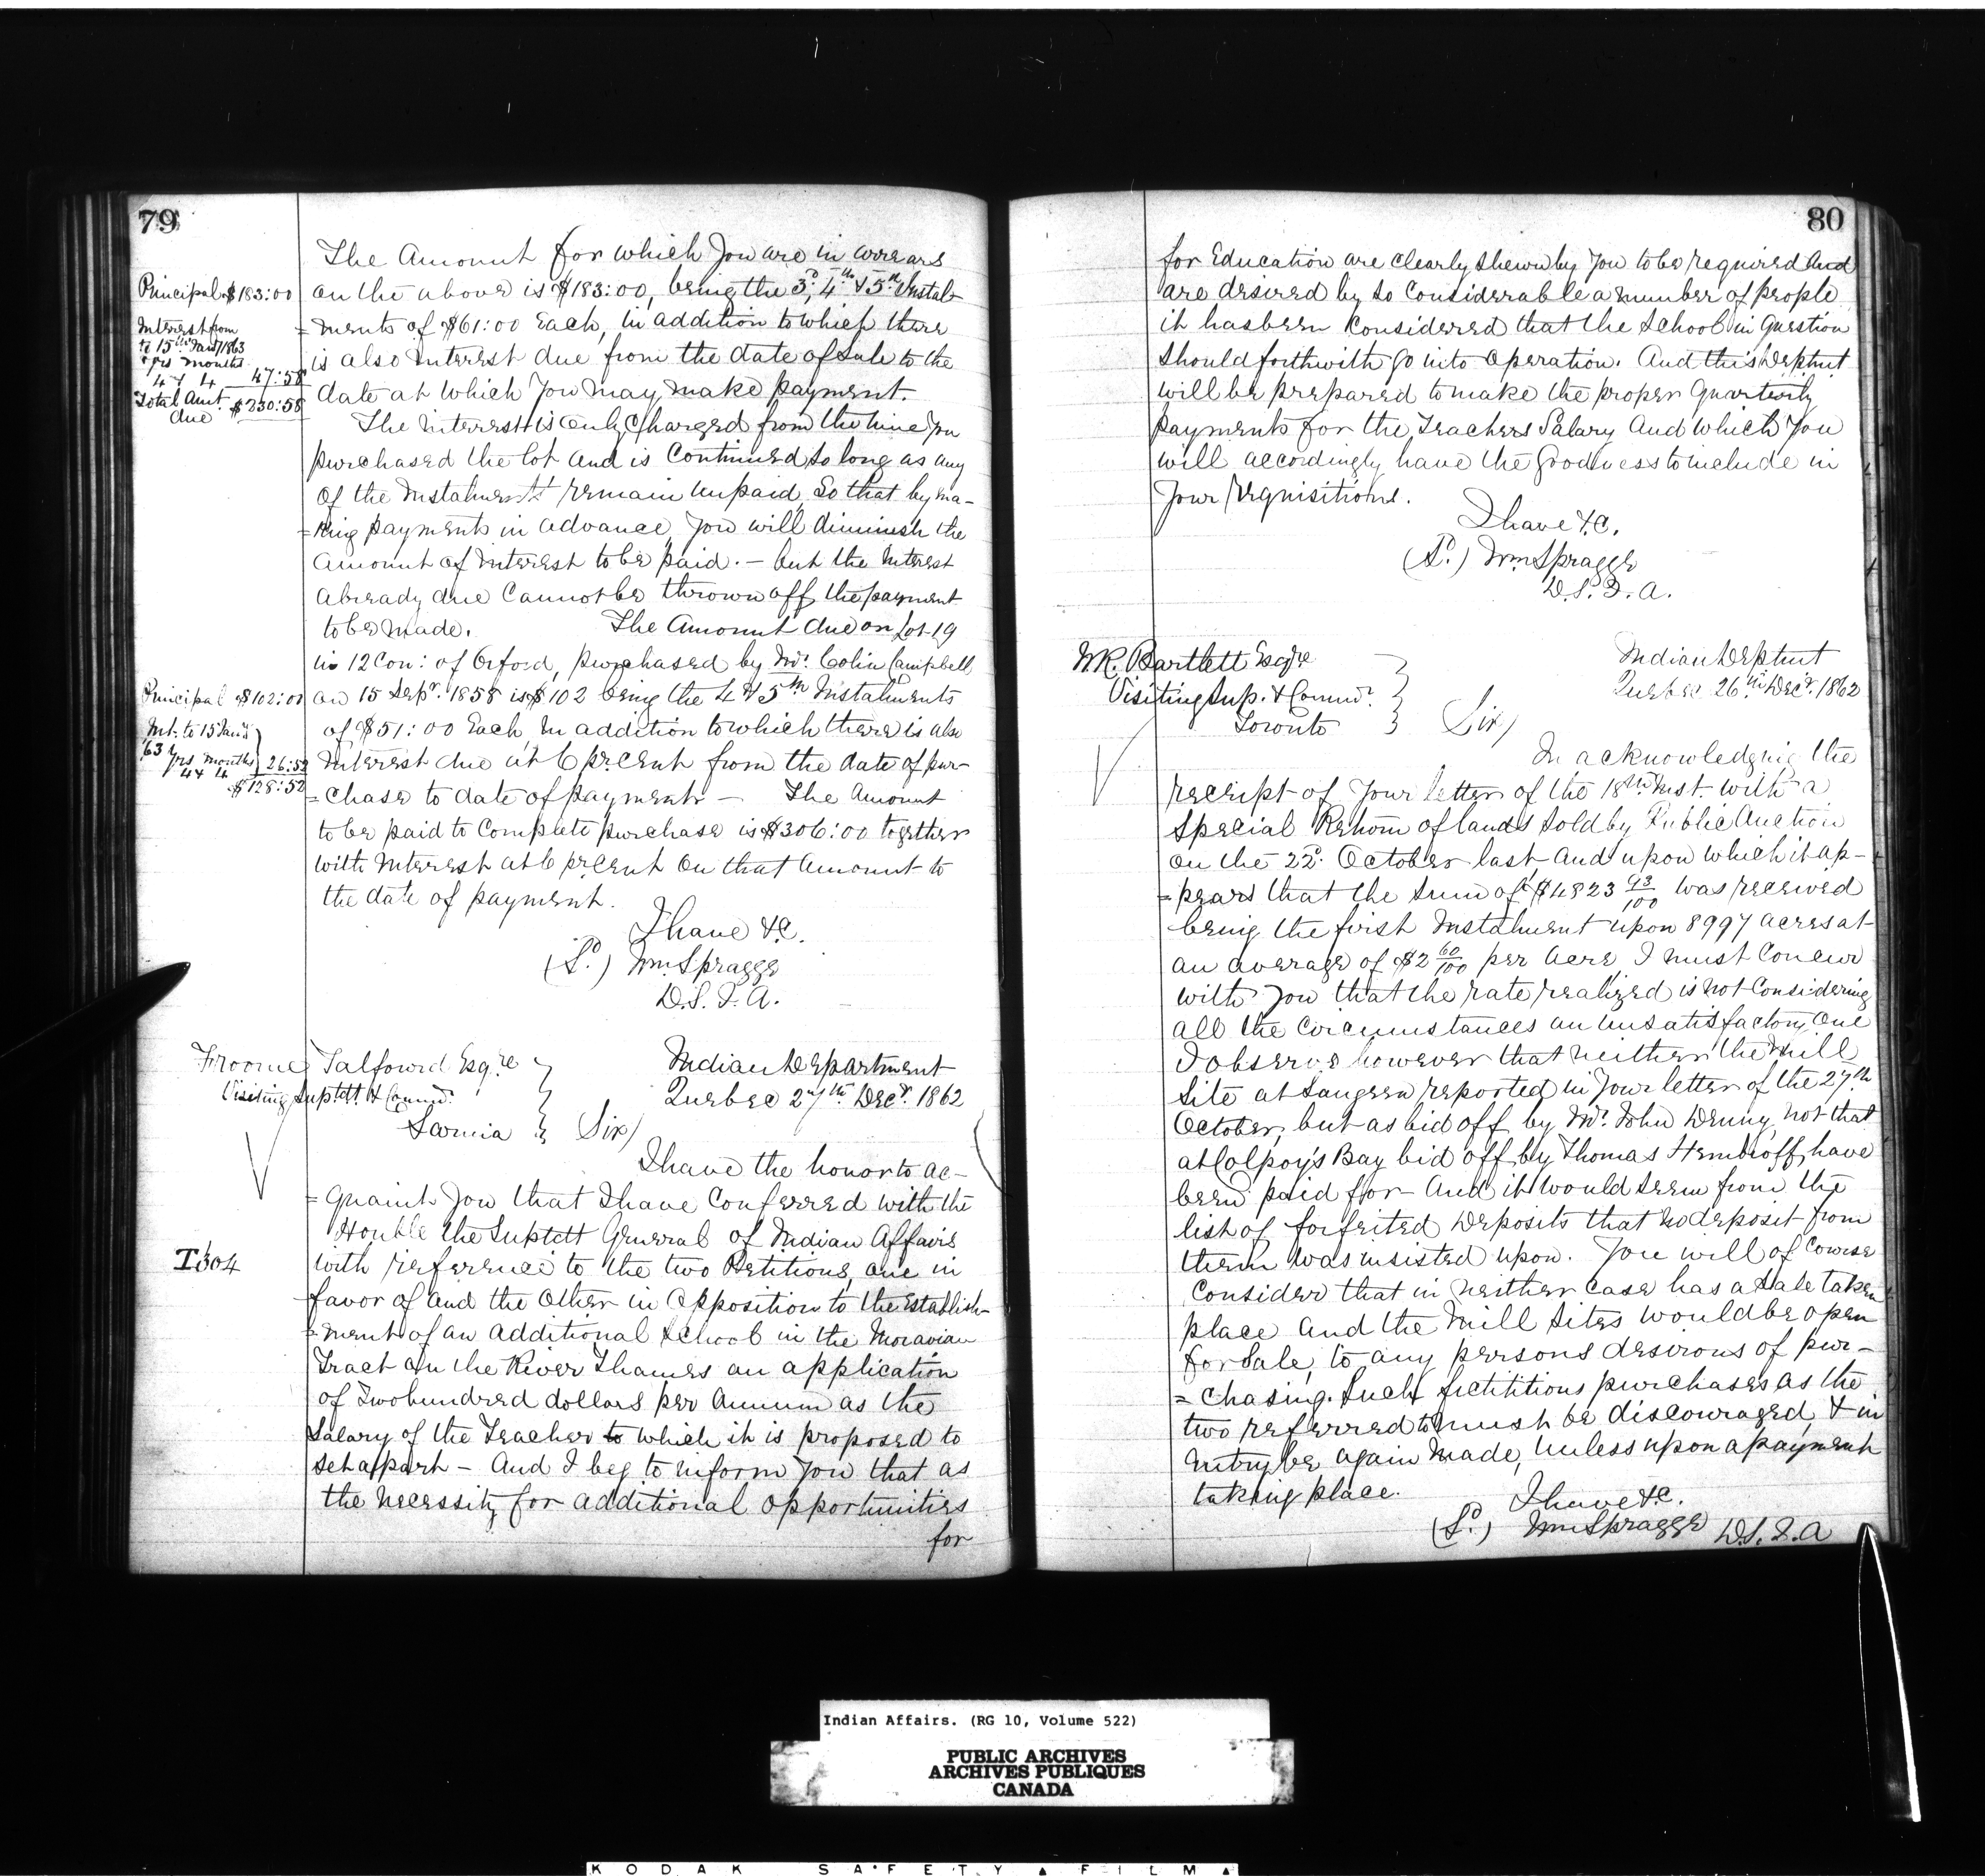 79
The Amount for which you are in arrears
Principal $183:00
on the above is $183:00, being the 3d, 4th & 5th Instal-
=ments of $61:00 Each, in addition to which there
Interest from
to 15th Jany 1863
yrs months
4 & 4 47:58
Total Amt.
due $230:58
is also Interest due from the date of sale to the
date at which you may make payment.
The interest is only charged from the time you
purchased the lot and is Continued so long as any
of the Instalments remain unpaid, So that by ma-
=king payments in advance, you will diminish the
amount of Interest to be paid. — but the Interest
already due Cannot be thrown off the payment
to be made. The Amount due on Lot 19
in 12 Con: of Orford, purchased by Mr. Colin Campbell
Principal $102:00
on 15 Sepr. 1858 is $102 being the 4 & 5th Instalments
of $51:00 Each, in addition to which there is also
Int. to 15 Jany
'63 yrs months
4 & 4 26:52
$128:52
Interest due at 6 pr. cent from the date of pur-
=chase to date of payment — The Amount
to be paid to Complete purchase is $306:00 together
with Interest at 6 pr cent on that Amount to
the date of payment.
I have &c.
(Sd.) Wm Spragge
D.S.I.A.
Froome Talfourd Esqre
Visiting Suptdt. & Commr.
Sarnia
Indian Department
Quebec 27th Decr. 1862
Sir/
I have the honor to ac-
=quaint you that I have Conferred with the
Honble the Suptdt General of Indian Affairs
I 304
with reference to the two Petitions, one in
favor of and the other in opposition to the Establish-
=ment of an additional School in the Moravian
Tract on the River Thames an application
of Two hundred dollars per Annum as the
Salary of the Teacher to which it is proposed to
set apart — And I beg to inform you that as
the necessity for additional opportunities
for
80
for Education are clearly shewn by you to be required and
are desired by so Considerable a number of people
it has been Considered that the School in question
should forthwith go into operation. And this Deptmt
will be prepared to make the proper quarterly
payments for the Teachers Salary and which you
will accordingly have the goodness to include in
your requisitions.
I have &c.
(Sd.) Wm Spragge
D.S.I.A.
W.R. Bartlett Esqre
Visiting Sup. & Commr.
Toronto
Indian Deptmt
Quebec 26th Decr. 1862
Sir/
In acknowledging the
receipt of your letter of the 18th Inst. with a
Special Return of lands sold by Public Auction
on the 22d. October last, and upon which it ap-
=pears that the sum of $4823 93/100 was received
being the first Instalment upon 8997 acres at
an average of $2 60/100 per acre, I must Concur
with you that the rate realized is not Considering
all the circumstances an unsatisfactory one
I observe however that neither the Mill
Site at Saugeen reported in your letter of the 27th
October, but as bid off by Mr. John Denny, not that
at Colpoy's Bay bid off by Thomas have
been paid for — And it would seem from the
list of forfeited Deposits that no deposit from
them was insisted upon. You will of Course
Consider that in neither case has a sale taken
place and the Mill Sites would be open
for Sale, to any persons desirous of pur-
=chasing. Such fictitious purchases as the
two referred to must be discouraged, & in
entry be again made, unless upon a payment
taking place.
I have &c.
(Sd.) Wm Spragge D.S.I.A
Indian Affairs. (RG 10, Volume 522)
PUBLIC ARCHIVES
ARCHIVES PUBLIQUES
CANADA
KODAK SAFETY FILM